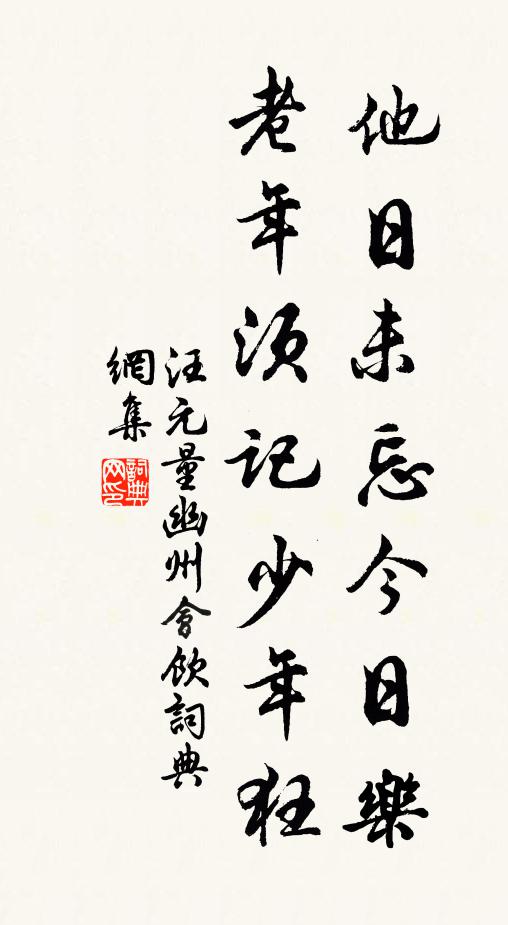 他日未忘今日樂
老年須記少年狂
汪元量幽州會飲詞典
網集
詞典
网印